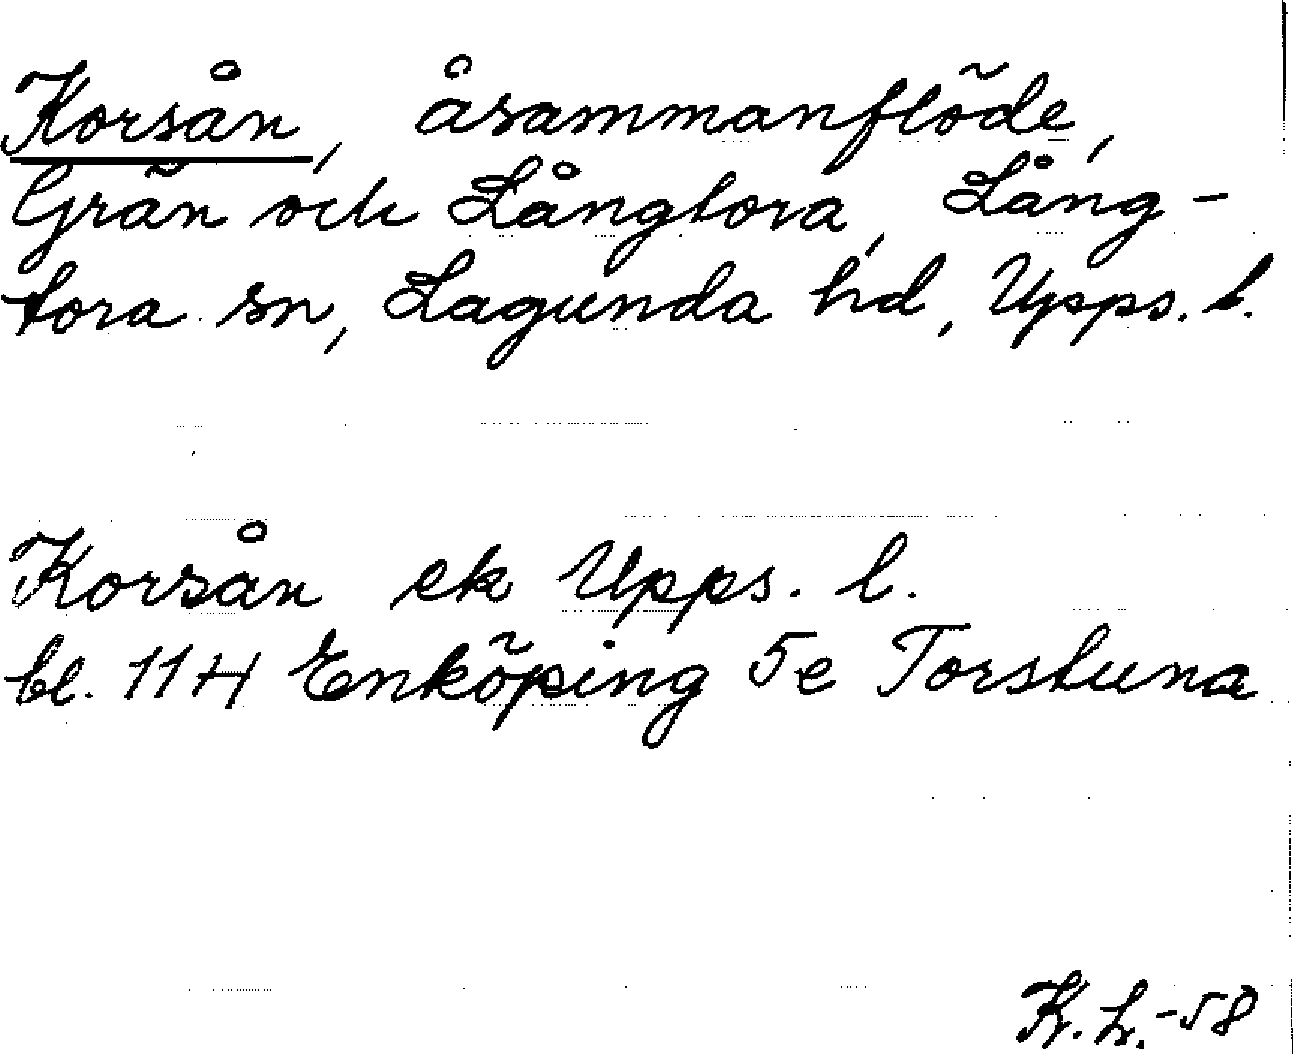 Korsån, åsammanflöde,
Grän och Långtora, Lång-
tora sn, Lagunda hd, Upps. l.
Korsån ek Upps. l.
bl. 11H Enköping 5e Torstuna
K. L. -58